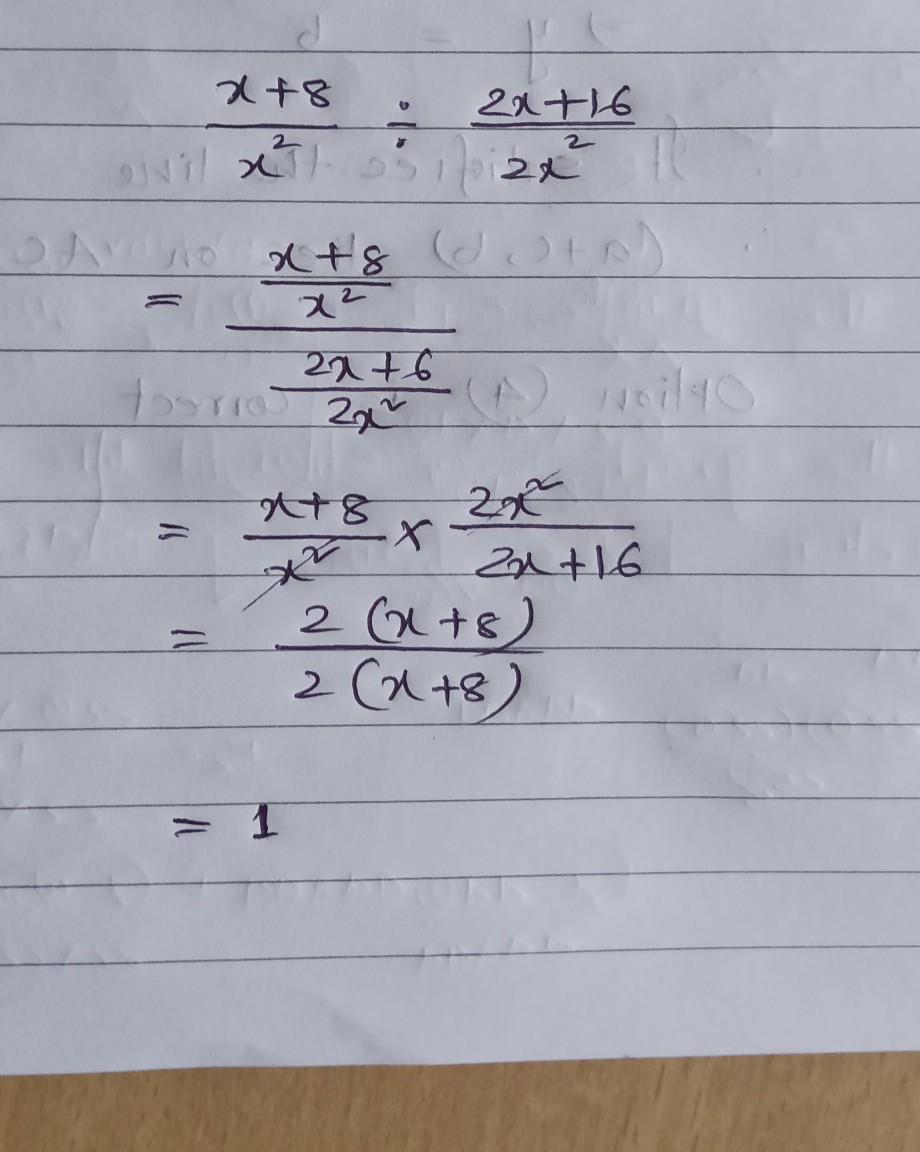 x+8/x² ÷ 2x+16/2x²
= x+8/x² / 2x+6/2x²
= x+8/x² × 2x²/2x+16
= 2(x+8)/2(x+8)
= 1